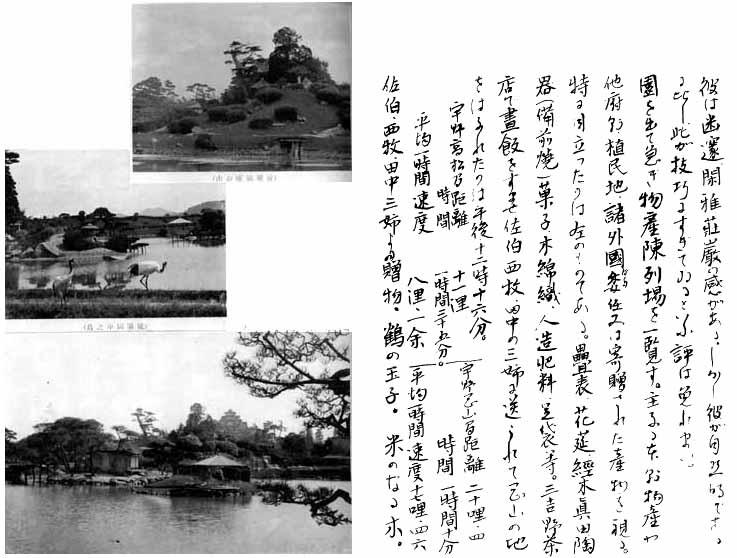 彼は幽邃閑雅荘厳の感がある。しかし彼が自然的である
に比し此が技巧にすぎてゐると云ふ評は免れまい
園を出て急ぎ物産陳列場を一覧す。主なる本県物産や
他府県、植民地、諸外國委任又は寄贈された産物を視る。
特に目立ったのは左のものである。疊表 花莚 經木眞田 陶
器(備前焼)菓子、木綿織、人造肥料 足袋等。三吉野茶
店で晝飯をすませ佐伯西牧、田中の三姉に送られて岡山の地
をはなれたのは午後十二時十六分。
宇野高松間距離 十一浬 宇野岡山間距離 二十哩.四
時間 一時間二十五分。 時間 一時間十分
平均一時間速度 八浬、一余 平均一時間速度十七哩.四六
佐伯、西牧、田中三姉より贈物。鶴の玉子。 米のなる木。